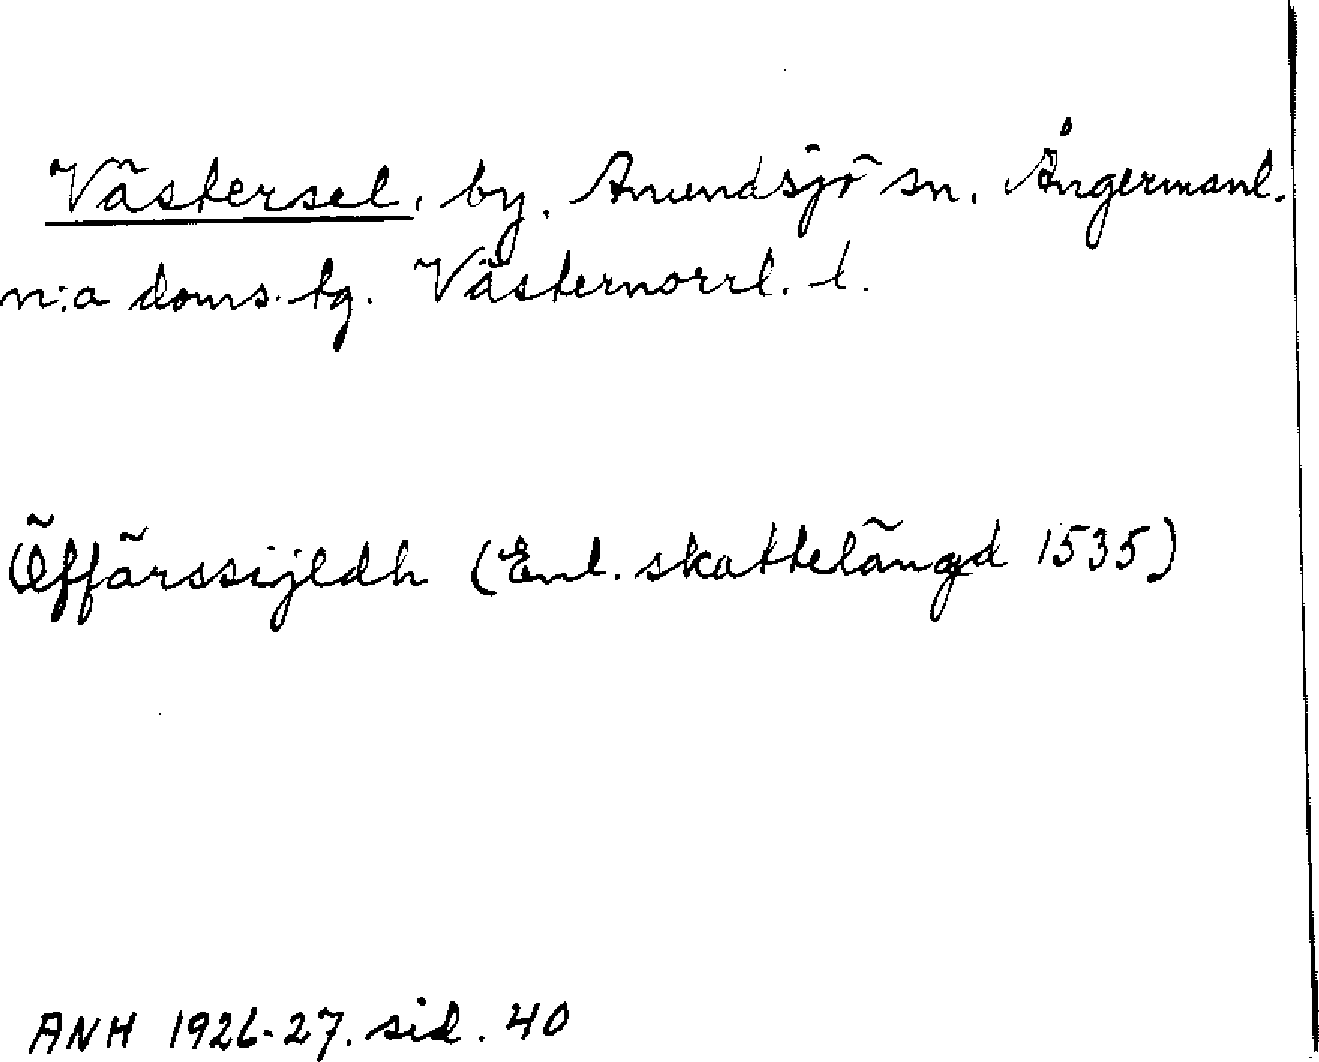 Västersel, by, Anundsjö sn, Ångermanl.
n:a doms. tg. Västernorrl. l.
Öffärssijeldh (Enl. skattelängd 1535)
ANH 1926-27. sid. 40